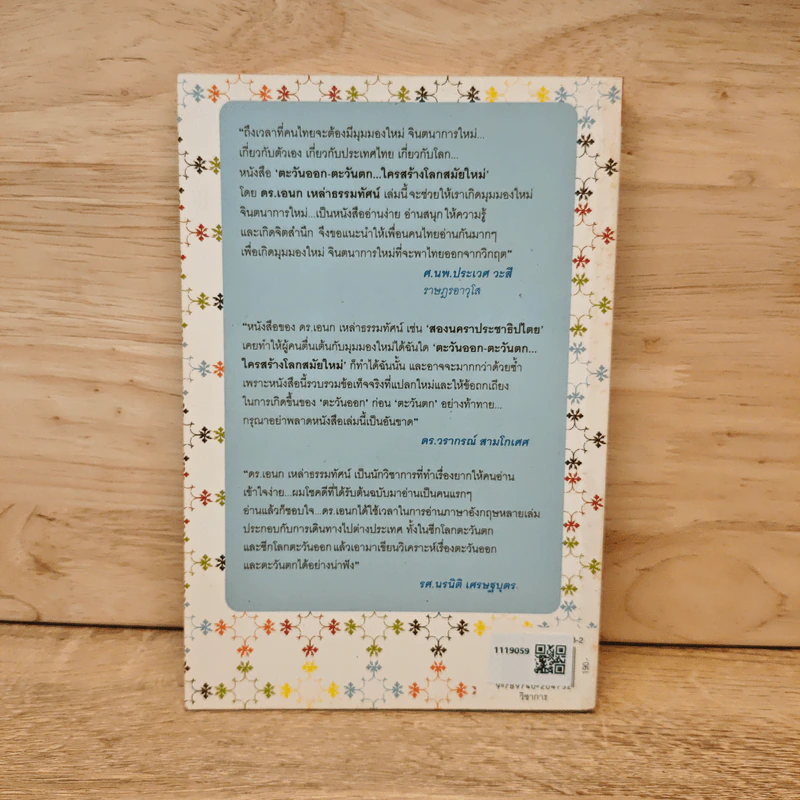 “ถึงเวลาที่คนไทยจะต้องมีมุมมองใหม่ จินตนาการใหม่...
เกี่ยวกับตัวเอง เกี่ยวกับประเทศไทย เกี่ยวกับโลก...
หนังสือ ‘ตะวันออก-ตะวันตก...ใครสร้างโลกสมัยใหม่’
โดย ดร.เอนก เหล่าธรรมทัศน์ เล่มนี้จะช่วยให้เราเกิดมุมมองใหม่
จินตนาการใหม่...เป็นหนังสืออ่านง่าย อ่านสนุก ให้ความรู้
และเกิดจิตสำนึก จึงขอแนะนำให้เพื่อนคนไทยอ่านกันมากๆ
เพื่อเกิดมุมมองใหม่ จินตนาการใหม่ที่จะพาไทยออกจากวิกฤต”
ศ.นพ.ประเวศ วะสี
ราษฎรอาวุโส
“หนังสือของ ดร.เอนก เหล่าธรรมทัศน์ เช่น ‘สองนคราประชาธิปไตย’
เคยทำให้ผู้คนตื่นเต้นกับมุมมองใหม่ได้ฉันใด ‘ตะวันออก-ตะวันตก...
ใครสร้างโลกสมัยใหม่’ ก็ทำได้ฉันนั้น และอาจจะมากกว่าด้วยซ้ำ
เพราะหนังสือนี้รวบรวมข้อเท็จจริงที่แปลกใหม่และให้ข้อถกเถียง
ในการเกิดขึ้นของ ‘ตะวันออก’ ก่อน ‘ตะวันตก’ อย่างท้าทาย...
กรุณาอย่าพลาดหนังสือเล่มนี้เป็นอันขาด”
ดร.วรากรณ์ สามโกเศศ
“ดร.เอนก เหล่าธรรมทัศน์ เป็นนักวิชาการที่ทำเรื่องยากให้คนอ่าน
เข้าใจง่าย...ผมโชคดีที่ได้รับต้นฉบับมาอ่านเป็นคนแรกๆ
อ่านแล้วก็ชอบใจ...ดร.เอนกได้ใช้เวลาในการอ่านภาษาอังกฤษหลายเล่ม
ประกอบกับการเดินทางไปต่างประเทศ ทั้งในซีกโลกตะวันตก
และซีกโลกตะวันออก แล้วเอามาเขียนวิเคราะห์เรื่องตะวันออก
และตะวันตกได้อย่างน่าฟัง”
รศ.นรนิติ เศรษฐบุตร
1119059
190.-
วิชาการ